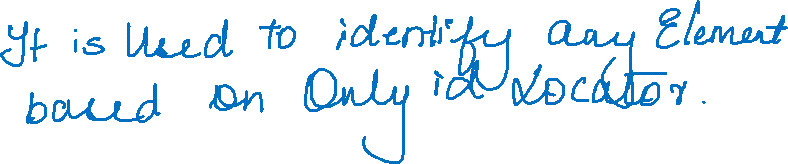 It is Used to identify any Element
based on Only id Locator.